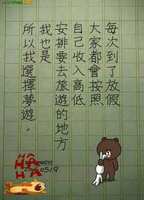 每次到了放假
大家都會按照
自己收入高低
安排要去旅遊的地方
我也是
所以我選擇夢遊。